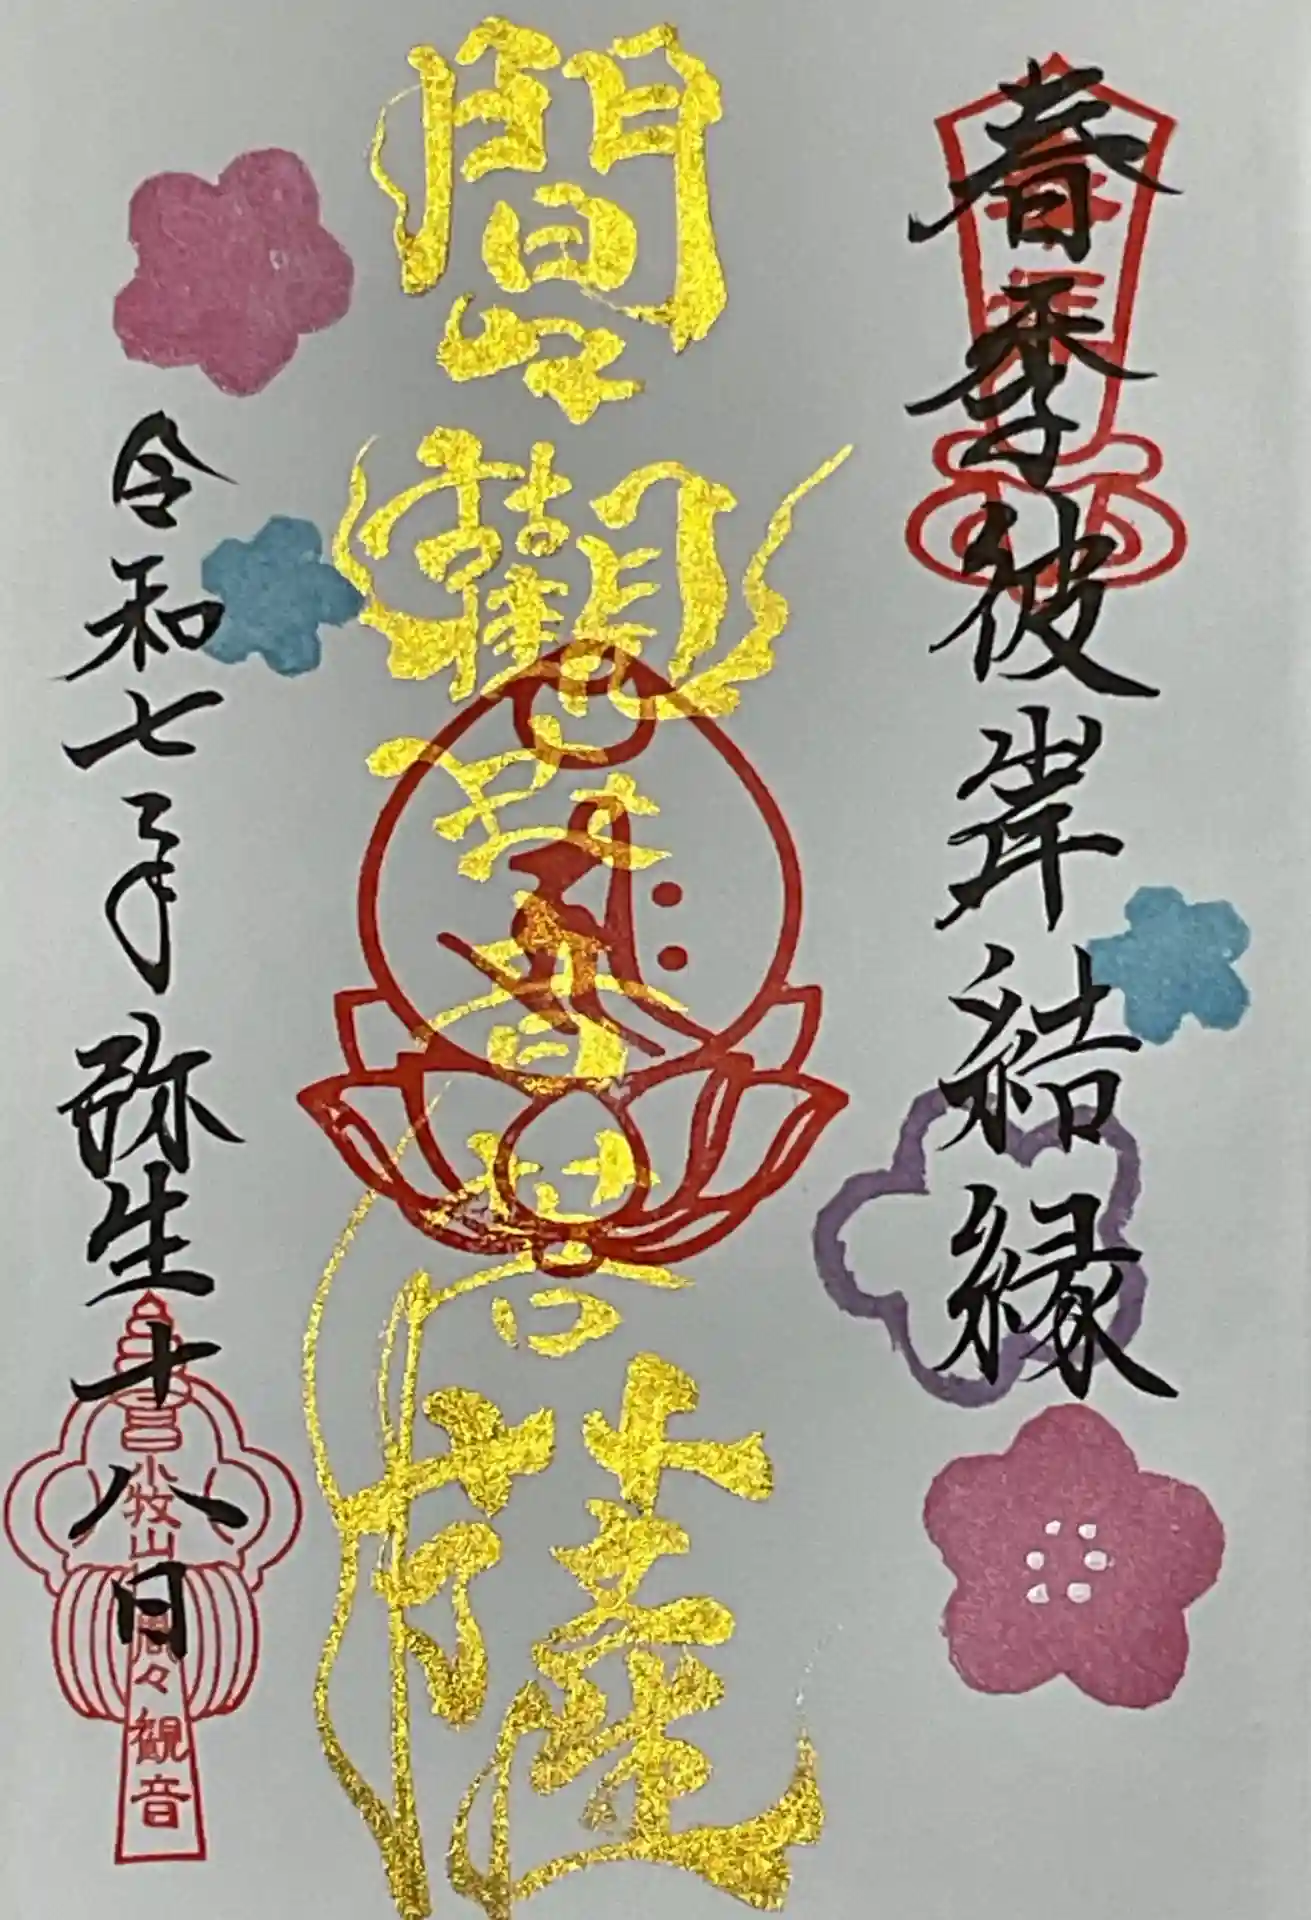 春季彼岸結縁
間々観世音菩薩
令和七年弥生十八日
小牧山
間々観音